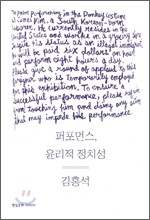 performing in the Donkey costume
is James Kim, a South Korean-born
He currently resides in the
United States and works in a grocery store
despite his status as an illegal
He will be paid six dollars an hour
and perform eight hours a day.
Please give a round of applause to this
who is temporarily employed
for this exhibition. To ensure a
successful performance, please
from touching him and doing any
that may impede the performance.
퍼포먼스,
윤리적 정치성
김홍석